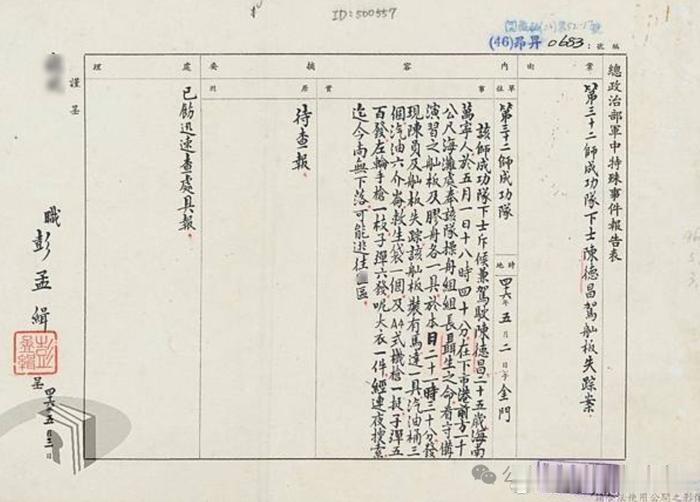 ID:500557
(46)昂昇 0683 : 號編
總政治部軍中特殊事件報告表
案由
第三十二師成功隊下士陳德昌駕舢板失踪案
內容摘要
單位
第三十二師成功隊
時地
四六年五月二日于金門
事實
該師成功隊下士斥候兼駕駛陳德昌二十五歲海南
萬寧人於五月一日十八時四十分在下市港前方二十
公尺海灘處奉該隊操舟組組長聶生之命看守備
演習之舢板及膠舟各一具於本日二十一時三十分發
現陳員及舢板失踪該舢板裝有馬達一具汽油桶三
個汽油六介崙救生袋一個及A4式機槍一挺子彈五
百發左輪手槍一枝子彈六發呢大衣一件經連夜搜索
迄今尚無下落可能逃往區
原因
待查一報
處理
已飭迅速查處具報
謹呈
職彭孟緝呈
四六五三日